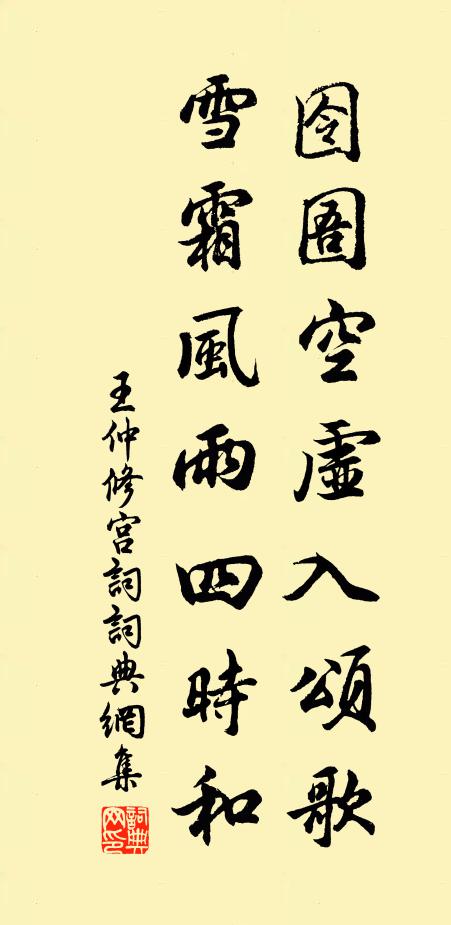 囹圄空虛入頌歌
雪霜風雨四時和
王仲修宮詞詞典網集
詞典網印